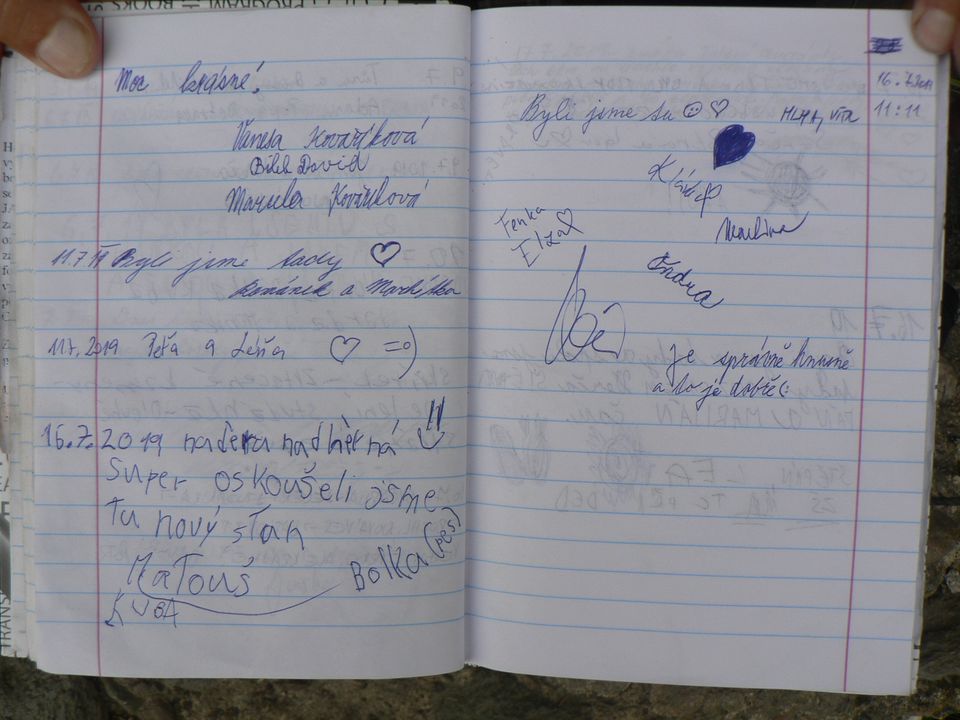 Moc krásné!
Vanesa Kovaříková
Bílek David
Marcela Kovaříková
11.7.19 Byli jsme tady ♡
a Markétka
11.7. 2019 Péťa a Léňa ♡ =o)
16.7.2019 nádhera nadhérná !!
super oskoušeli jsme
tu nový stan
Matouš
Bolka (pes)
KUBA
16.7.2019
11:11
Byli jsme tu ☺ ♡
♥
Klára
Martina
Fenka
Elza ♡
Ondra
je správně hnusně
a to je dobře (: